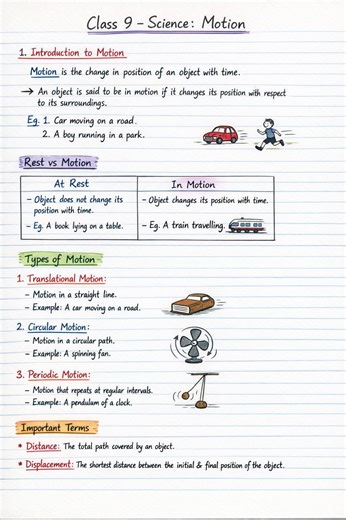 Class 9 – Science: Motion
1. Introduction to Motion
Motion is the change in position of an object with time.
→ An object is said to be in motion if it changes its position with respect
to its surroundings.
Eg. 1. Car moving on a road.
2. A boy running in a park.
Rest vs Motion
At Rest
– Object does not change its
position with time.
– Eg. A book lying on a table.
In Motion
– Object changes its position with time.
– Eg. A train travelling.
Types of Motion
1. Translational Motion:
– Motion in a straight line.
– Example: A car moving on a road.
2. Circular Motion:
– Motion in a circular path.
– Example: A spinning fan.
3. Periodic Motion:
– Motion that repeats at regular intervals.
– Example: A pendulum of a clock.
Important Terms
* Distance: The total path covered by an object.
* Displacement: The shortest distance between the initial & final position of the object.